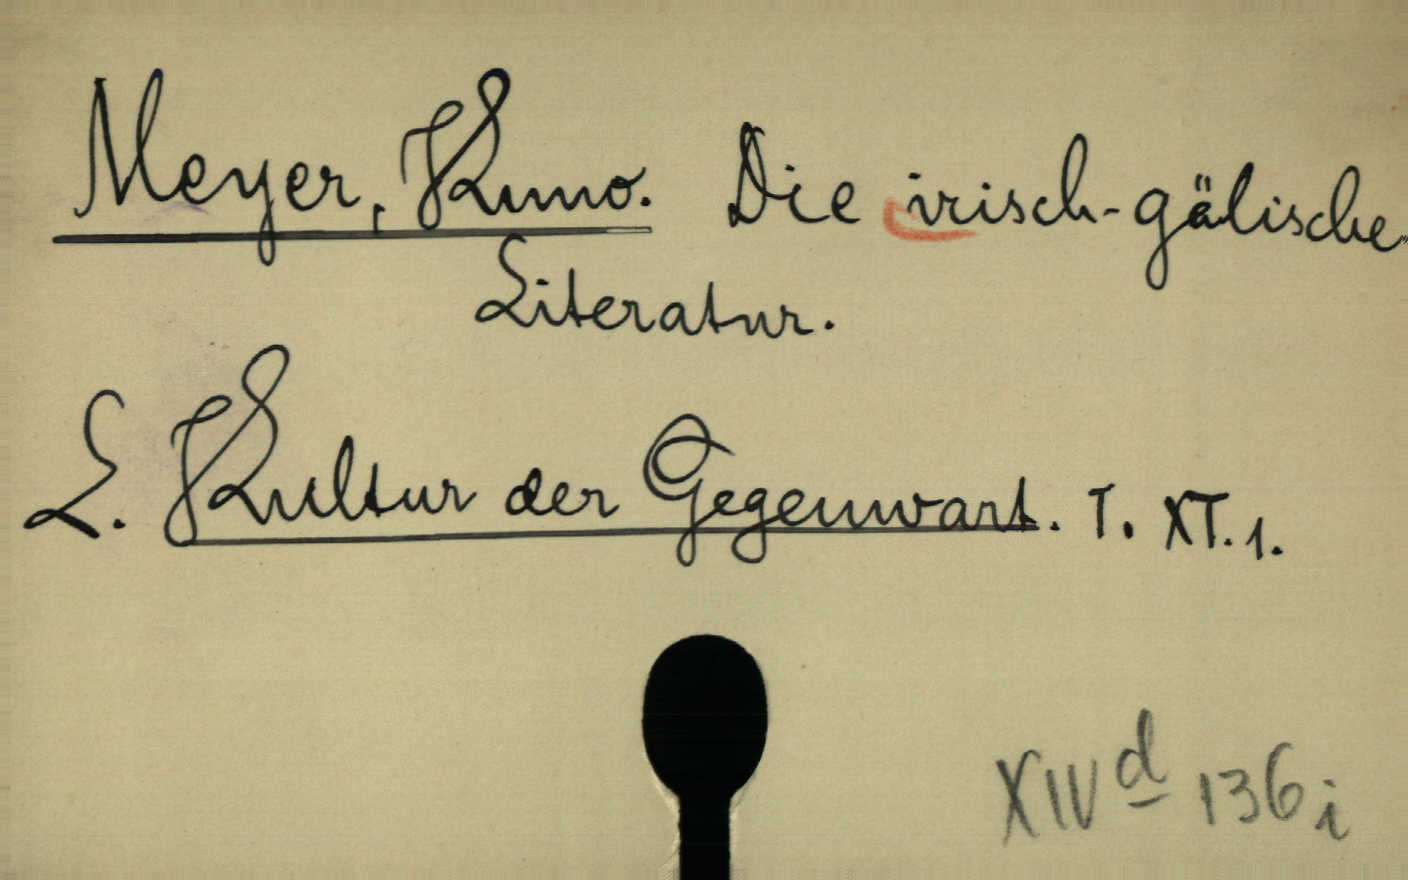 Meyer, Kuno. Die irisch-gälische
Literatur.
L. Kultur der Gegenwart. T. XI.1.
XIV d 136 i